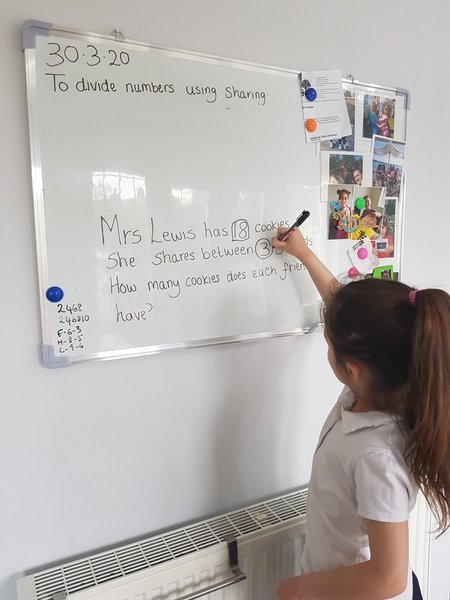 30.3.20
To divide numbers using Sharing.
Mrs Lewis has 18 cookies
She shares between 3
How many cookies does each
have?
2468
246810